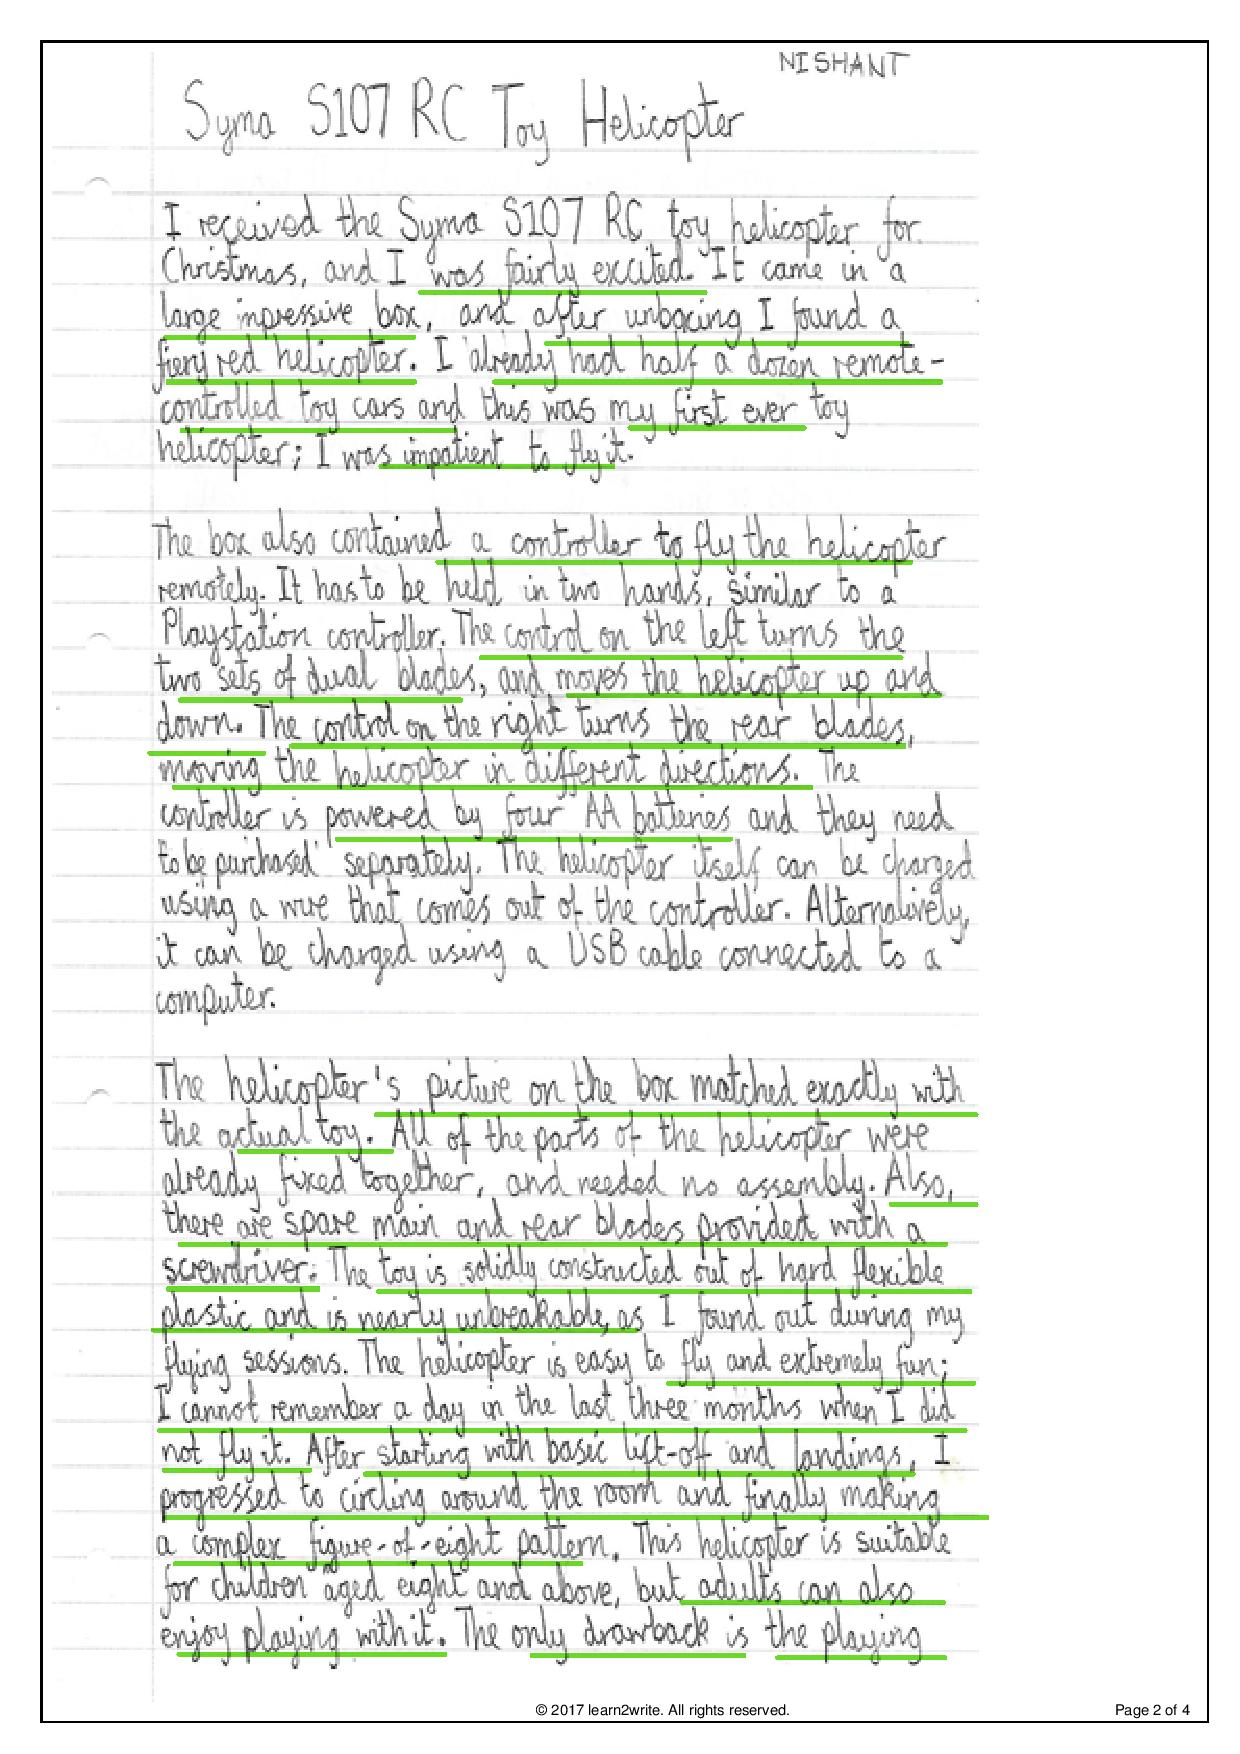 NISHANT
Syma S107 RC Toy Helicopter
I received the Syma S107 RC toy helicopter for
Christmas, and I was fairly excited. It came in a
large impressive box, and after unboxing I found a
fiery red helicopter. I already had half a dozen remote-
controlled toy cars and this was my first ever toy
helicopter; I was impatient to fly it.
The box also contained a controller to fly the helicopter
remotely. It has to be held in two hands, similar to a
Playstation controller. The control on the left turns the
two sets of dual blades, and moves the helicopter up and
down. The control on the right turns the rear blades,
moving the helicopter in different directions. The
controller is powered by four AA batteries and they need
to be purchased separately. The helicopter itself can be charged
using a wire that comes out of the controller. Alternatively,
it can be charged using a USB cable connected to a
computer.
The helicopter's picture on the box matched exactly with
the actual toy. All of the parts of the helicopter were
already fixed together, and needed no assembly. Also,
there are spare main and rear blades provided with a
screwdriver. The toy is solidly constructed out of hard flexible
plastic and is nearly unbreakable, as I found out during my
flying sessions. The helicopter is easy to fly and extremely fun;
I cannot remember a day in the last three months when I did
not fly it. After starting with basic lift-off and landings, I
progressed to circling around the room and finally making
a complex figure-of-eight pattern. This helicopter is suitable
for children aged eight and above, but adults can also
enjoy playing with it. The only drawback is the playing
© 2017 learn2write. All rights reserved.
Page 2 of 4